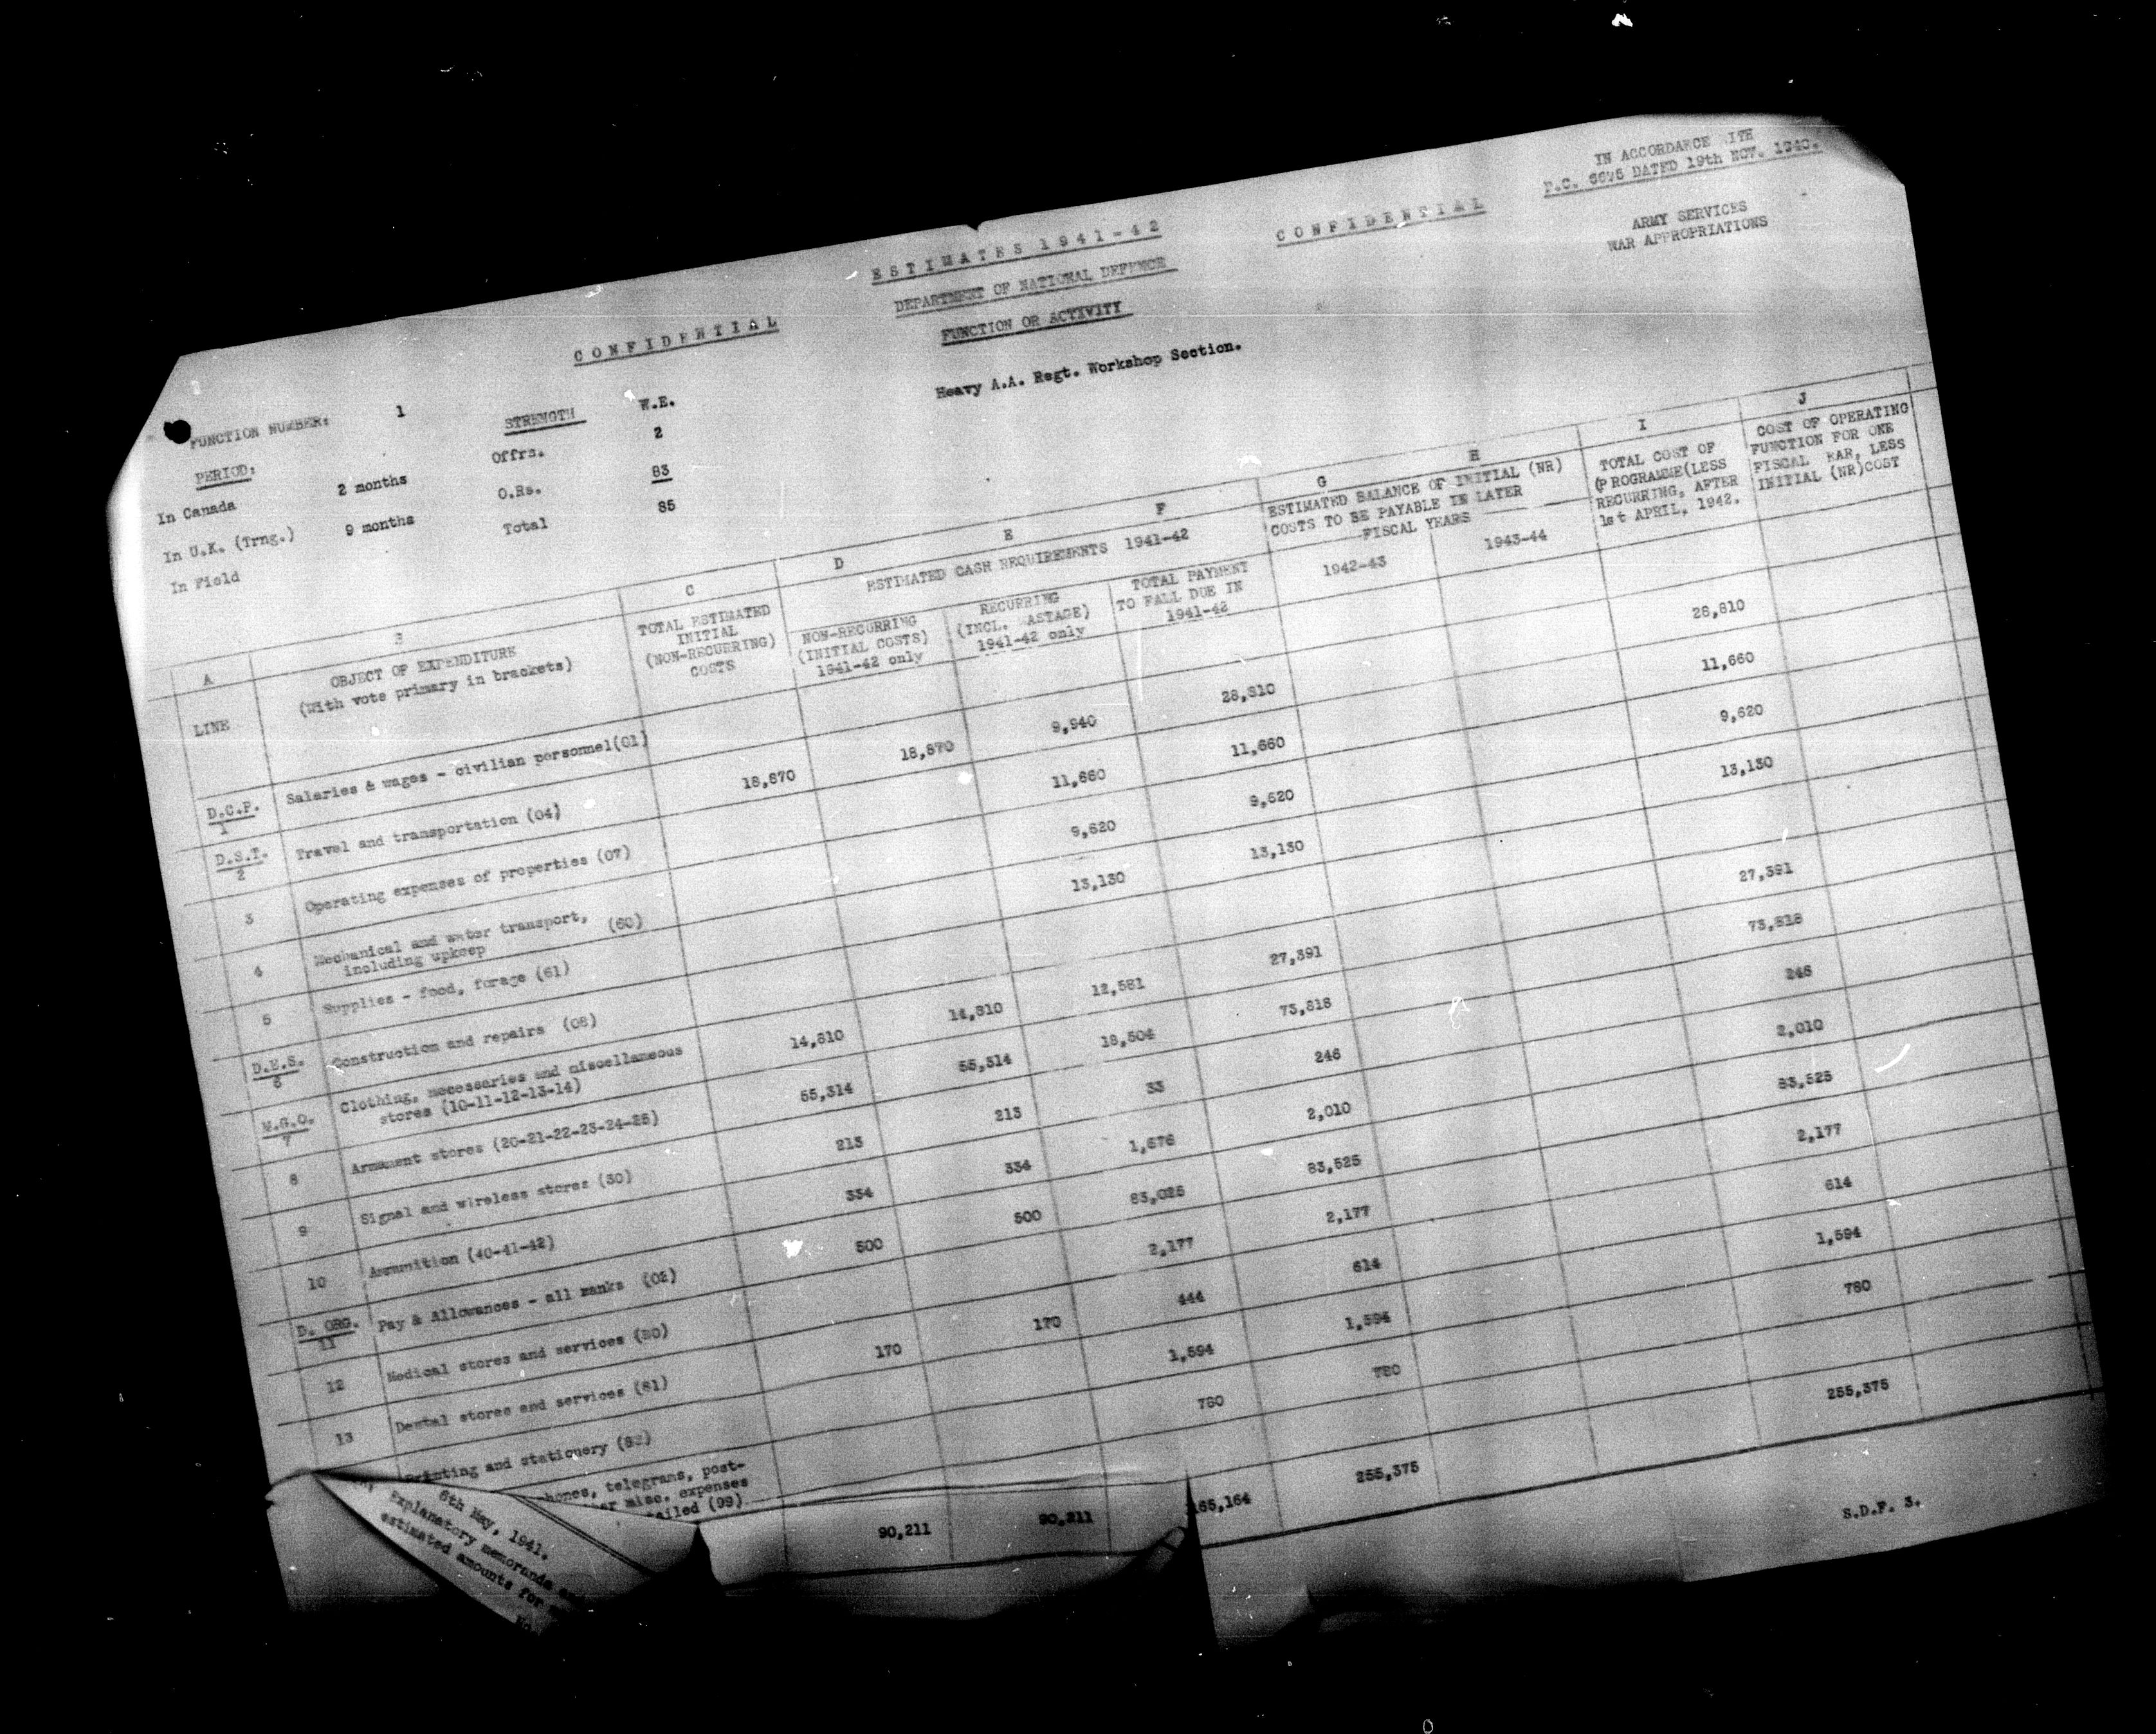 IN ACCORDANCE WITH
P.C. 6675 DATED 19th NOV. 1940.
ESTIMATES 1941-42
CONFIDENTIAL
ARMY SERVICES
WAR APPROPRIATIONS
DEPARTMENT OF NATIONAL DEFENCE
CONFIDENTIAL
FUNCTION OR ACTIVITY
Heavy A.A. Regt. Workshop Section.
FUNCTION NUMBER: 1 STRENGTH W.E.
PERIOD: Offrs. 2
In Canada 2 months O.Rs. 83
In U.K. (Trng.) 9 months Total 85
In Field
A B C D E F G H I J
LINE
OBJECT OF EXPENDITURE
(With vote primary in brackets)
TOTAL ESTIMATED
INITIAL
(NON-RECURRING)
COSTS
ESTIMATED CASH REQUIREMENTS 1941-42
NON-RECURRING
(INITIAL COSTS)
1941-42 only
RECURRING
(INCL. WASTAGE)
1941-42 only
TOTAL PAYMENT
TO FALL DUE IN
1941-42
ESTIMATED BALANCE OF INITIAL (NR)
COSTS TO BE PAYABLE IN LATER
FISCAL YEARS
1942-43 1943-44
TOTAL COST OF
(PROGRAMME(LESS
RECURRING, AFTER
1st APRIL, 1942.
COST OF OPERATING
FUNCTION FOR ONE
FISCAL EAR, LESS
INITIAL (NR)COST
D.C.P.
1 Salaries & wages - civilian personnel(01)
D.S.T.
2 Travel and transportation (04) 18,870 18,870 9,940 28,810 28,810
3 Operating expenses of properties (07) 11,660 11,660 11,660
4 Mechanical and water transport,
including upkeep (60) 9,620 9,620 9,620
5 Supplies - food, forage (61) 13,130 13,130 13,130
D.E.S.
6 Construction and repairs (08)
M.G.O.
7 Clothing, necessaries and miscellaneous
stores (10-11-12-13-14) 14,810 14,810 12,581 27,391 27,391
8 Armament stores (20-21-22-23-24-25) 55,314 55,314 18,504 73,818 73,818
9 Signal and wireless stores (30) 213 213 33 246 246
10 Ammunition (40-41-42) 334 334 1,676 2,010 2,010
D. ORG.
11 Pay & Allowances - all ranks (02) 500 500 83,025 83,525 83,525
12 Medical stores and services (80) 2,177 2,177 2,177
13 Dental stores and services (81) 170 170 444 614 614
Printing and stationery (82) 1,594 1,594 1,594
hones, telegrams, post-
er misc. expenses
tailed (99) 780 780 780
90,211 90,211 165,164 255,375 255,375
6th May, 1941.
Explanatory memoranda
estimated amounts for
S.D.F. 3.